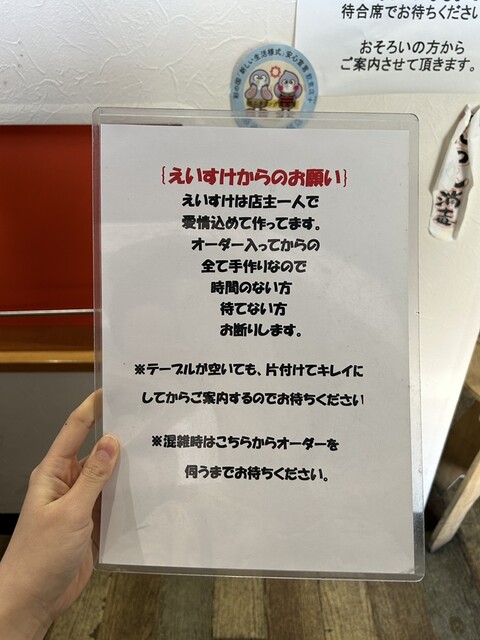 待合席でお待ちください
おそろいの方から
ご案内させて頂きます。
新しい生活様式 安心宣言 飲食店
{えいすけからのお願い}
えいすけは店主一人で
愛情込めて作ってます。
オーダー入ってからの
全て手作りなので
時間のない方
待てない方
お断りします。
※テーブルが空いても、片付けてキレイに
してからご案内するのでお待ちください
※混雑時はこちらからオーダーを
伺うまでお待ちください。
消毒